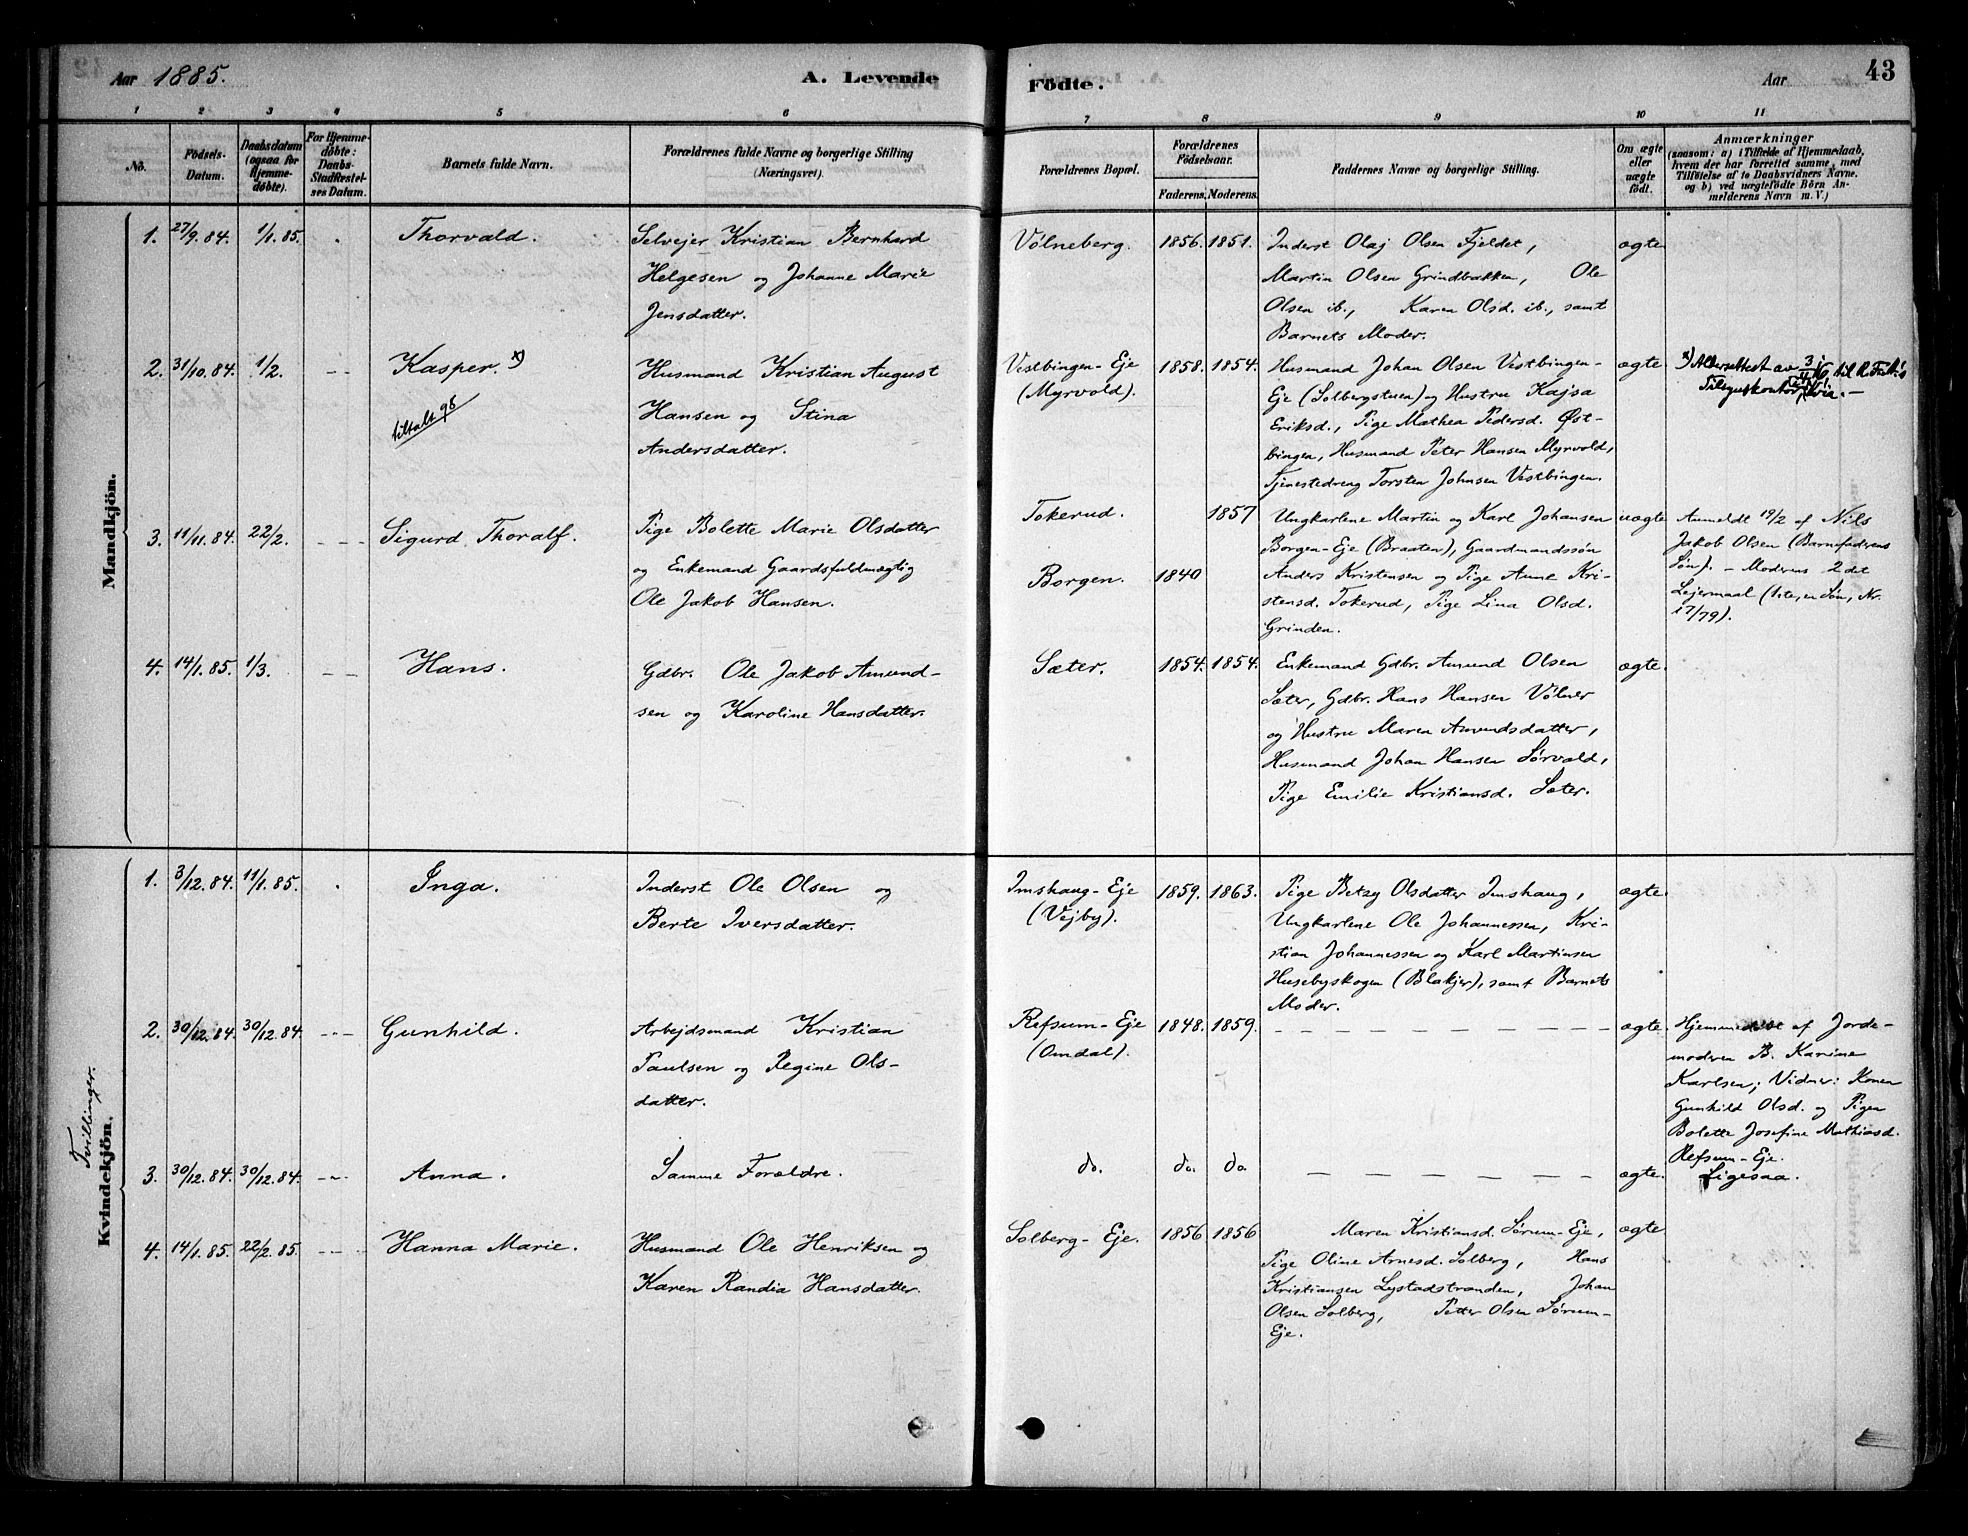 Aar 1885. A. Levende
1 2 3 4 5 6
No. Födsels-Datum. Daabsdatum (ogsaa for Hjemmedöbte). For Hjemmedöbte: Daabs-Stadfæstelses Datum. Barnets fulde Navn. Forældrenes fulde Navne og borgerlige Stilling (Næringsvei).
Mandkjön.
1. 27/9.84. 1/1.85. Thorvald. Selvejer Kristian Bernhard
Helgesen og Johanne Marie
Jensdatter.
2. 31/10.84. 1/2. Kasper. x) Husmand Kristian August
tiltalt 98 Hansen og Stina
Andersdatter.
3. 11/11.84. 22/2. Sigurd Thoralf. Pige Bolette Marie Olsdatter
og Enkemand Gaardsfuldmægtig
Ole Jakob Hansen.
4. 14/1.85. 1/3. Hans. Gdbr. Ole Jakob Amund-
sen og Karoline Hansdatter.
Tvillinger.
Kvindekjön.
1. 3/12.84. 11/1.85. Inga. Inderst Ole Olsen og
Berte Iversdatter.
2. 30/12.84. 30/12.84. Gunhild. Arbejdsmand Kristian
Paulsen og Regine Ols-
datter.
3. 30/12.84. 30/12.84. Anna. Samme Forældre.
4. 14/1.85. 22/2.85. Hanna Marie. Husmand Ole Henriksen og
Karen Randia Hansdatter.
Födte. Aar 43
7 8 9 10 11
Forældrenes Bopæl. Forældrenes Födselsaar. Faderens. Moderens. Faddernes Navne og borgerlige Stilling. Om ægte eller uægte födt. Anmærkninger
(saasom: a) i Tilfælde af Hjemmedaab,
hvem der har forrettet samme, med
Tilföielse af to Daabsvidners Navne,
og b) ved uægtefödte Börn An-
melderens Navn m. V.)
Völneberg. 1856. 1851. Inderst Olaj Olsen Fjeldet, ægte
Martin Olsen Grindbakken, Ole
Olsen ib., Karen Olsd. ib., samt
Barnets Moder.
Vestbingen-Eje 1858. 1854. Husmand Johan Olsen Vestbingen- ægte x) Aldersattest av
(Myrvold). Eje (Solbergstuen) og Hustru Kajsa
Eriksd., Pige Mathea Pedersd. Øst-
bingen, Husmand Peter Hansen Myrvold,
Tjenestedreng Torsten Johnsen Vestbingen.
Tokerud. 1857 Ungkarlene Martin og Karl Johansen uægte Anmeldt 19/2 af Nils
Borgen-Eje (Braaten), Gaardmandssön Jakob Olsen (Barnefaderens
Borgen. 1840 Anders Kristensen og Pige Anne Kri- Sön). - Moderens 2det
stensd. Tokerud, Pige Lina Olsd. Lejermaal (1ste, en Sön, Nr.
Grinden. 17/79).
Sæter. 1854. 1854. Enkemand Gdbr. Amund Olsen ægte.
Sæter, Gdbr. Hans Hansen Völner
og Hustru Maren Amundsdatter,
Husmand Johan Hansen Sörvald,
Pige Emilie Kristiansd. Sæter.
Imshaug-Eje 1859. 1863. Pige Betzy Olsdatter Imshaug, ægte.
(Vejby). Ungkarlene Ole Johannessen, Kri-
stian Johannessen og Karl Martinsen
Husebyskogen (Blakjer), samt Barnets
Moder.
Refsum-Eje 1848. 1859. ægte. Hjemmedöbt af Jorde-
(Omdal). moderen B. Karine
Karlsen; Vidner: Konen
Gunhild Olsd. og Pigen
Bolette Josefine Mathiasd.
Refsum-Eje.
do. do. do. ægte. Ligesaa.
Solberg-Eje. 1856 1856 Maren Kristiansd. Sörum-Eje, ægte
Pige Oline Arnesd. Solberg, Hans
Kristiansen Lystadstranden, Johan
Olsen Solberg, Petter Olsen Sörum-
Eje.